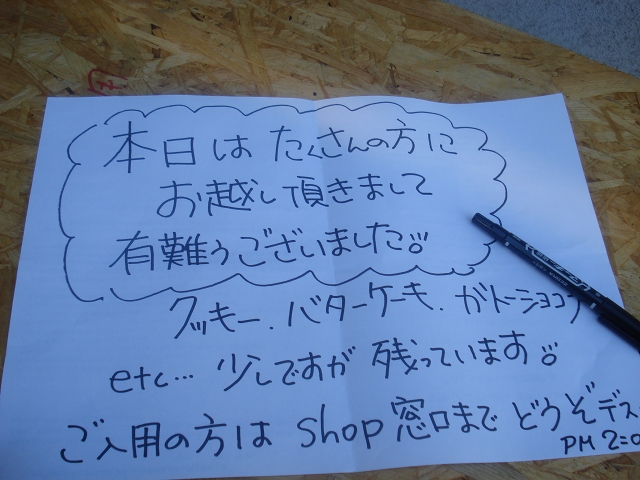 本日は たくさんの方に
お越し頂きまして
有難うございました!!
クッキー. バターケーキ. ガトーショコラ
etc… 少しですが 残っています!!
ご入用の方は shop窓口まで どうぞデス
PM 2=0